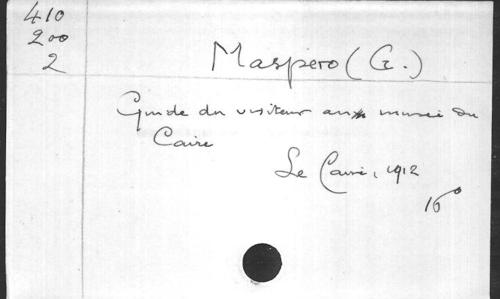 410
200
2
Maspero (G.)
Guide du visiteur au musée du
Caire
Le Caire, 1912
16°